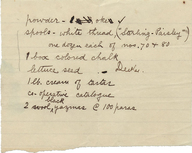 powder -
spools - white thread (Sterling-Paisley)
one dozen each of nos. 70 & 80
1 box colored chalk
lettuce seed -
1 lb. cream of tartar
co-operative catalogue
black
2 wool @ 100